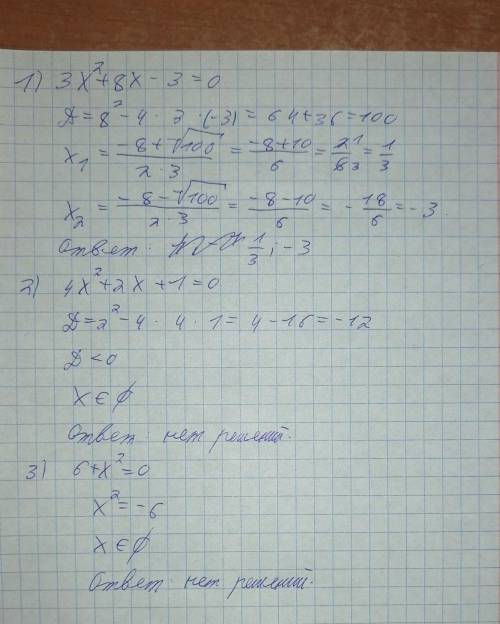 1) 3x²+8x-3=0
D=8²-4·3·(-3)=64+36=100
x₁ = (-8+√100)/(2·3) = (-8+10)/6 = 2̶1/6̶3 = 1/3
x₂ = (-8-√100)/(2·3) = (-8-10)/6 = -18/6 = -3
Ответ: 1/3; -3
2) 4x²+2x+1=0
D=2²-4·4·1=4-16=-12
D<0
x∈∅
Ответ: нет решений.
3) 6+x²=0
x²=-6
x∈∅
Ответ: нет решений.